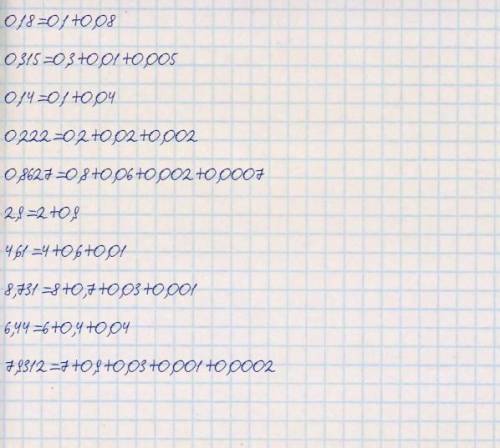 0,18=0,1+0,08
0,315=0,3+0,01+0,005
0,14=0,1+0,04
0,222=0,2+0,02+0,002
0,8627=0,8+0,06+0,002+0,0007
2,9=2+0,9
4,61=4+0,6+0,01
8,731=8+0,7+0,03+0,001
6,44=6+0,4+0,04
7,9312=7+0,9+0,03+0,001+0,0002